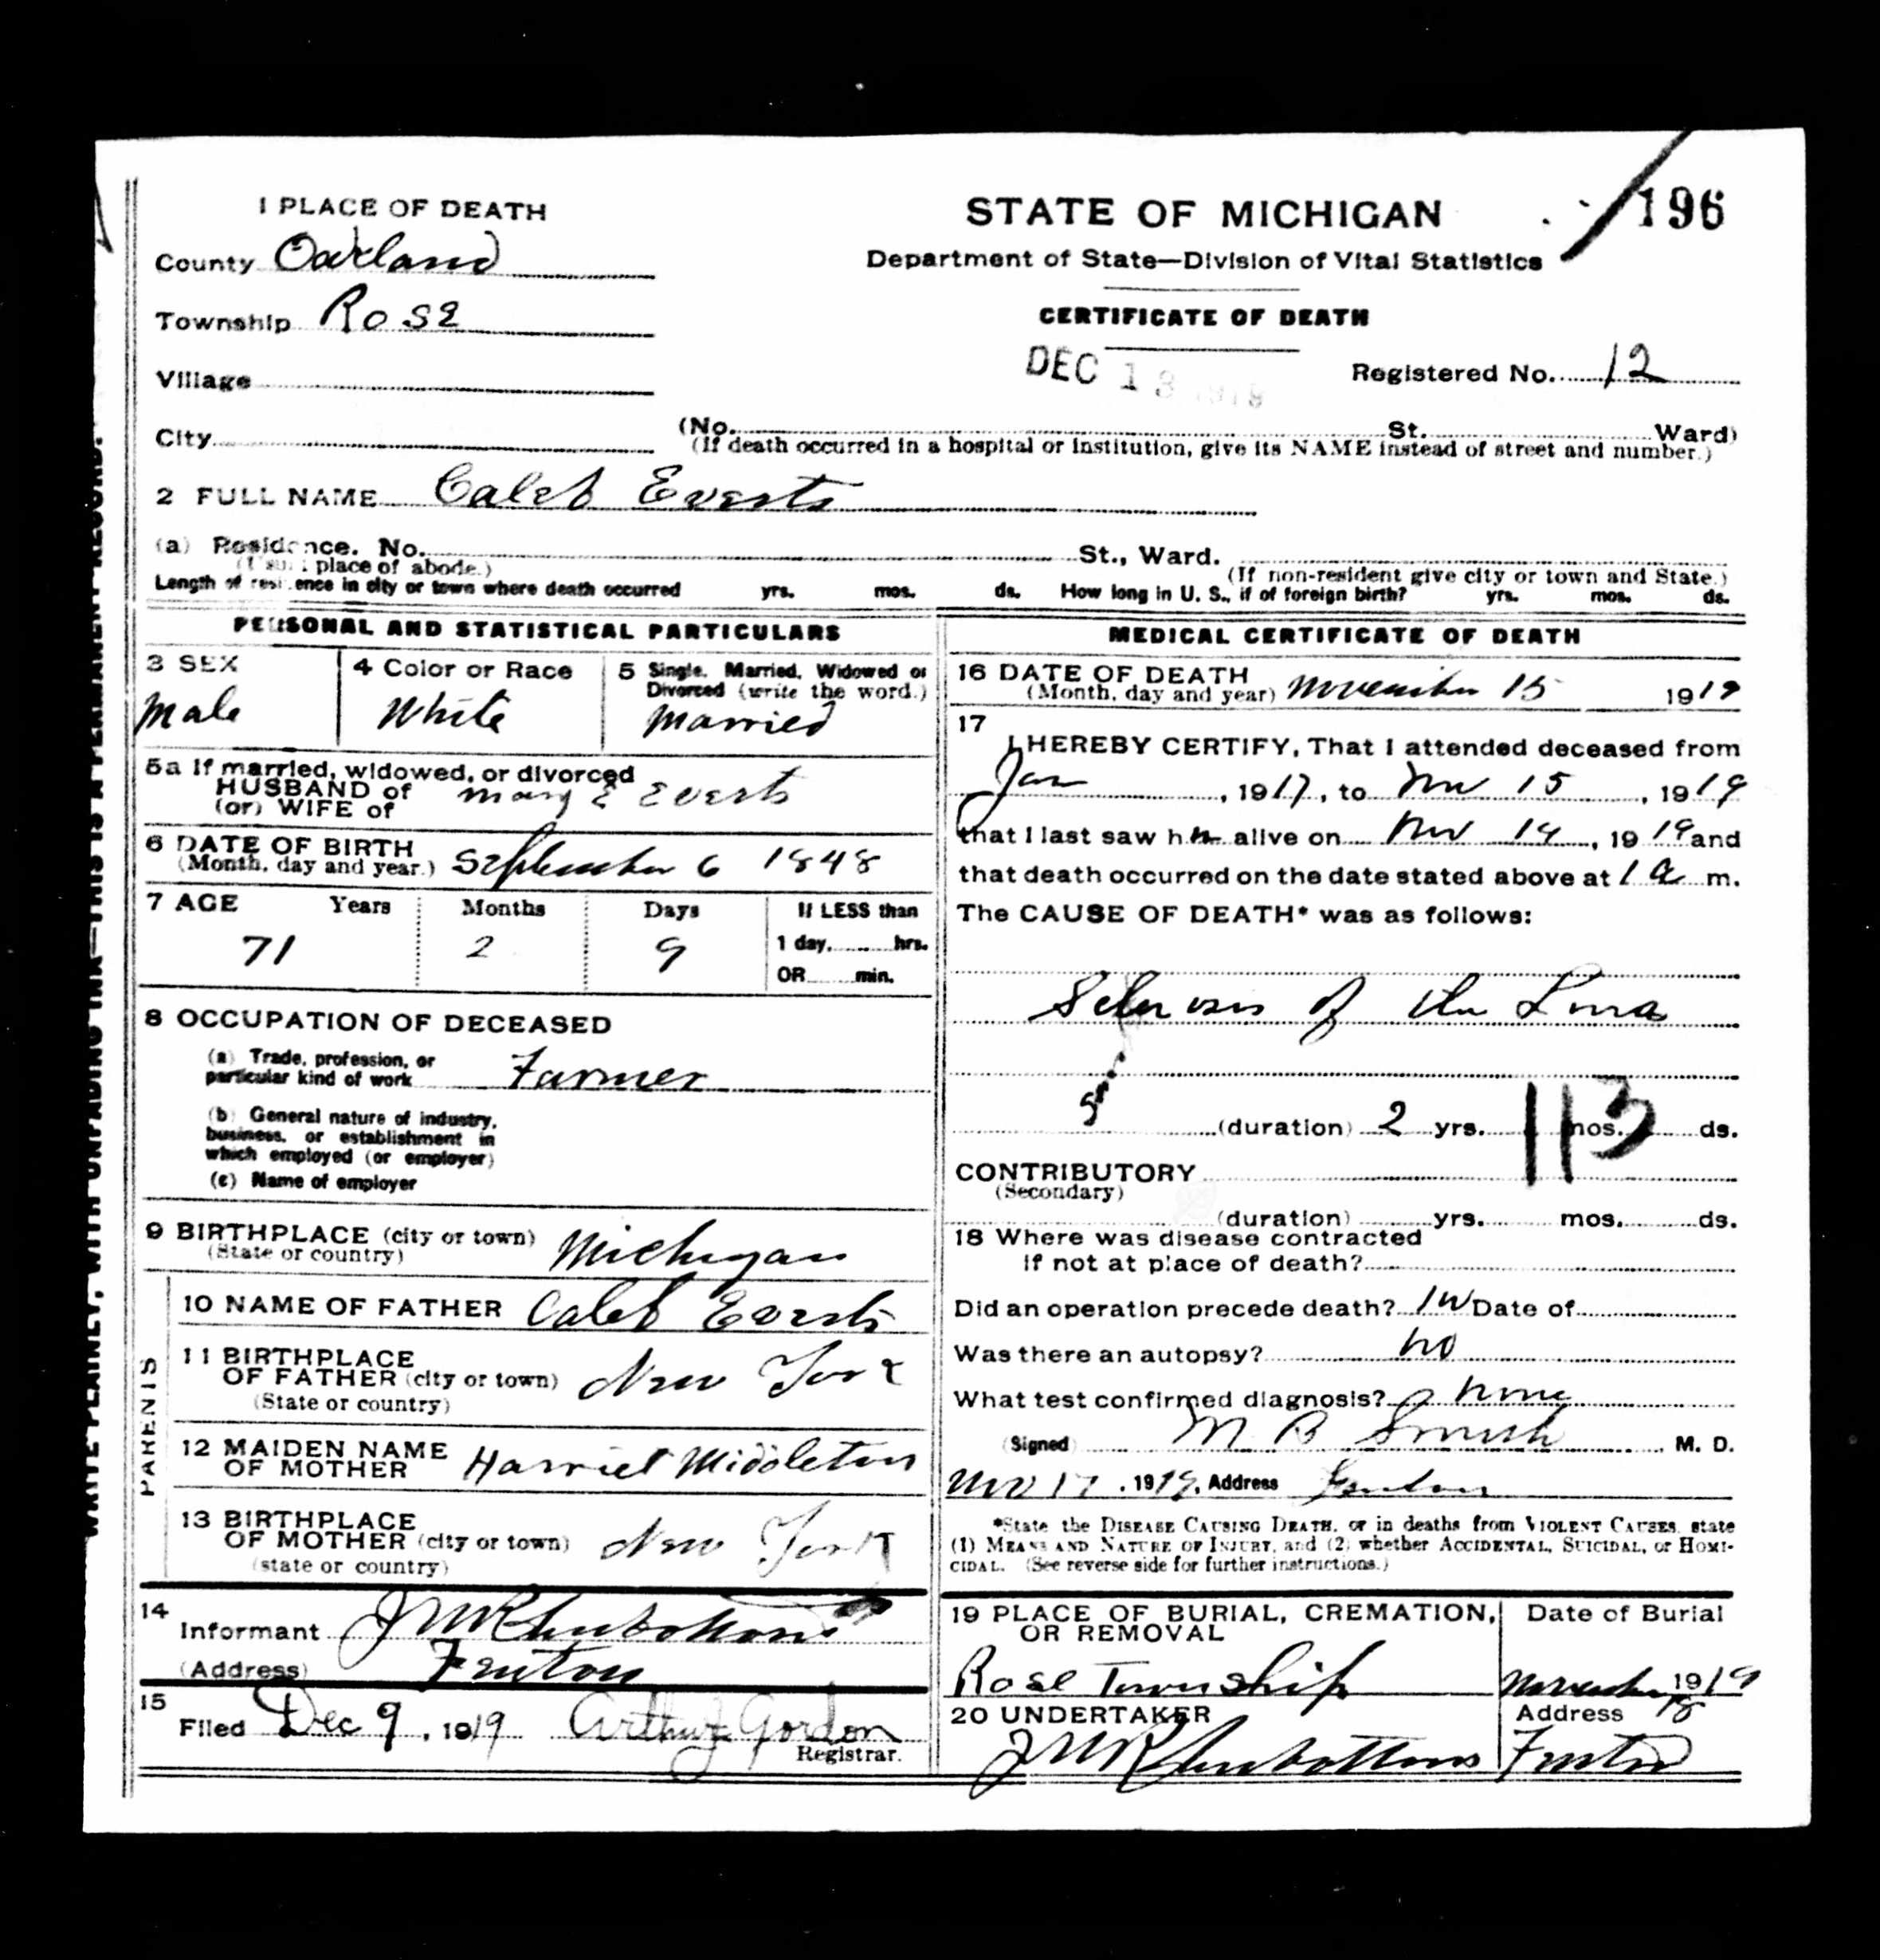 1 PLACE OF DEATH
STATE OF MICHIGAN
196
County Oakland
Department of State—Division of Vital Statistics
Township Rose
CERTIFICATE OF DEATH
DEC 13 1919
Village
Registered No. 12
City (No. St. Ward)
(If death occurred in a hospital or institution, give its NAME instead of street and number.)
2 FULL NAME Caleb Everts
(a) Residence. No. St., Ward.
(Usual place of abode.) (If non-resident give city or town and State.)
Length of residence in city or town where death occurred yrs. mos. ds. How long in U. S., if of foreign birth? yrs. mos. ds.
PERSONAL AND STATISTICAL PARTICULARS
3 SEX
Male
4 Color or Race
White
5 Single, Married, Widowed or
Divorced (write the word.)
Married
5a If married, widowed, or divorced
HUSBAND of Mary E Everts
(or) WIFE of
6 DATE OF BIRTH
(Month, day and year.) September 6 1848
7 AGE Years Months Days If LESS than
71 2 9 1 day, hrs.
OR min.
8 OCCUPATION OF DECEASED
(a) Trade, profession, or
particular kind of work Farmer
(b) General nature of industry,
business, or establishment in
which employed (or employer)
(c) Name of employer
9 BIRTHPLACE (city or town) Michigan
(State or country)
PARENTS
10 NAME OF FATHER Caleb Everts
11 BIRTHPLACE
OF FATHER (city or town) New York
(State or country)
12 MAIDEN NAME
OF MOTHER Harriet Middleton
13 BIRTHPLACE
OF MOTHER (city or town) New York
(state or country)
14
Informant
(Address) Fenton
15
Filed Dec 9, 1919 Arthur J Gordon
Registrar.
MEDICAL CERTIFICATE OF DEATH
16 DATE OF DEATH
(Month, day and year) November 15 1919
17
I HEREBY CERTIFY, That I attended deceased from
Jan, 1917, to Nov 15, 1919
that I last saw him alive on Nov 14, 1919 and
that death occurred on the date stated above at 1 a m.
The CAUSE OF DEATH* was as follows:
Sclerosis of the Liver
(duration) 2 yrs. mos. ds.
113
CONTRIBUTORY
(Secondary)
(duration) yrs. mos. ds.
18 Where was disease contracted
if not at place of death?
Did an operation precede death? no Date of
Was there an autopsy? no
What test confirmed diagnosis? none
(Signed) M B Smith M. D.
Nov 17, 1919, Address Fenton
*State the DISEASE CAUSING DEATH, or in deaths from VIOLENT CAUSES, state
(1) MEANS AND NATURE OF INJURY, and (2) whether ACCIDENTAL, SUICIDAL, or HOMI-
CIDAL. (See reverse side for further instructions.)
19 PLACE OF BURIAL, CREMATION,
OR REMOVAL
Rose Township
Date of Burial
November 18 1919
20 UNDERTAKER
Address
Fenton